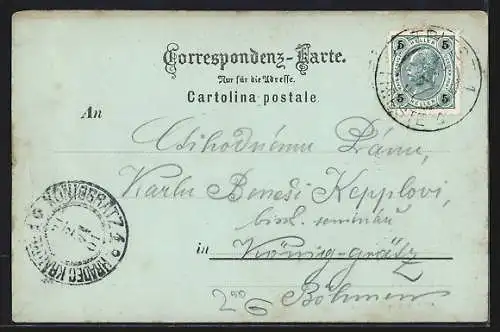 Correspondenz-Karte.
Nur für die Adresse.
Cartolina postale
5 HELLER 5
5 5
TRIEST 1
TRIESTE
An
Ctihodnému Pánu,
Karlu Beneši Kepplovi,
bisk. seminář
in König-grätz
Böhmen
KÖNIGGRÄTZ
HRADEC KRÁLOVÉ